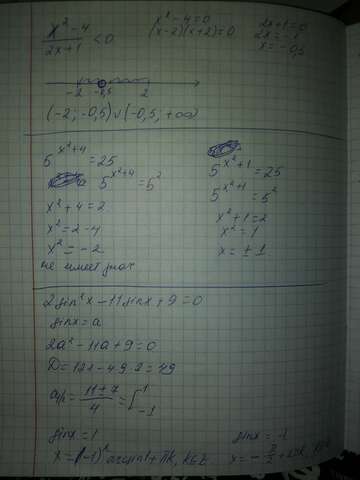 x² - 4 / 2x + 1 < 0
x² - 4 = 0
(x-2)(x+2) = 0
2x + 1 = 0
2x = -1
x = -0,5
-2 -0,5 2
(-2; -0,5) ∪ (-0,5; +∞)
5^(x²+4) = 25
5^(x²+4) = 5²
x² + 4 = 2
x² = 2 - 4
x² = -2
не имеет знач
5^(x²+1) = 25
5^(x²+1) = 5²
x² + 1 = 2
x² = 1
x = ± 1
2sin²x - 11sinx + 9 = 0
sinx = a
2a² - 11a + 9 = 0
D = 121 - 4·9·2 = 49
a₁/₂ = (11 ± 7) / 4 = [ 1 -1
sinx = 1
x = (-1)^k arcsin1 + πk, k∈Z
sinx = -1
x = -π/2 + 2πk, k∈Z